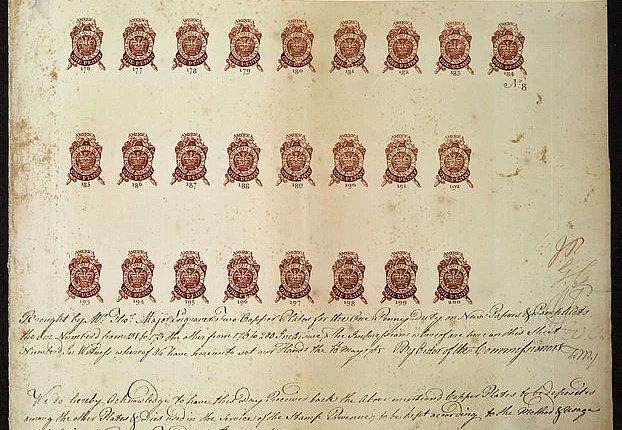 AMERICA AMERICA AMERICA AMERICA AMERICA AMERICA AMERICA AMERICA AMERICA
176 177 178 179 180 181 182 183 184
No. 8
AMERICA AMERICA AMERICA AMERICA AMERICA AMERICA AMERICA AMERICA
185 186 187 188 189 190 191 192
AMERICA AMERICA AMERICA AMERICA AMERICA AMERICA AMERICA AMERICA
193 194 195 196 197 198 199 200
Brought by Mr. Thos. Major Engraver Two Copper Plates for the One Penny Duty on News Papers & Pamphlets
the one Number'd from to the other from 176 to 200 Inclusive, the Impressions whereof are here on this Sheet
Number, in Witness whereof We have hereunto set our Hands the May By Order of the Commissioners
We do hereby Acknowledge to have this Day Received back the above mentioned Copper Plates to be deposited
among the other Plates & Dies used in the Service of the Stamp Revenue, to be kept according to the Method & Usage